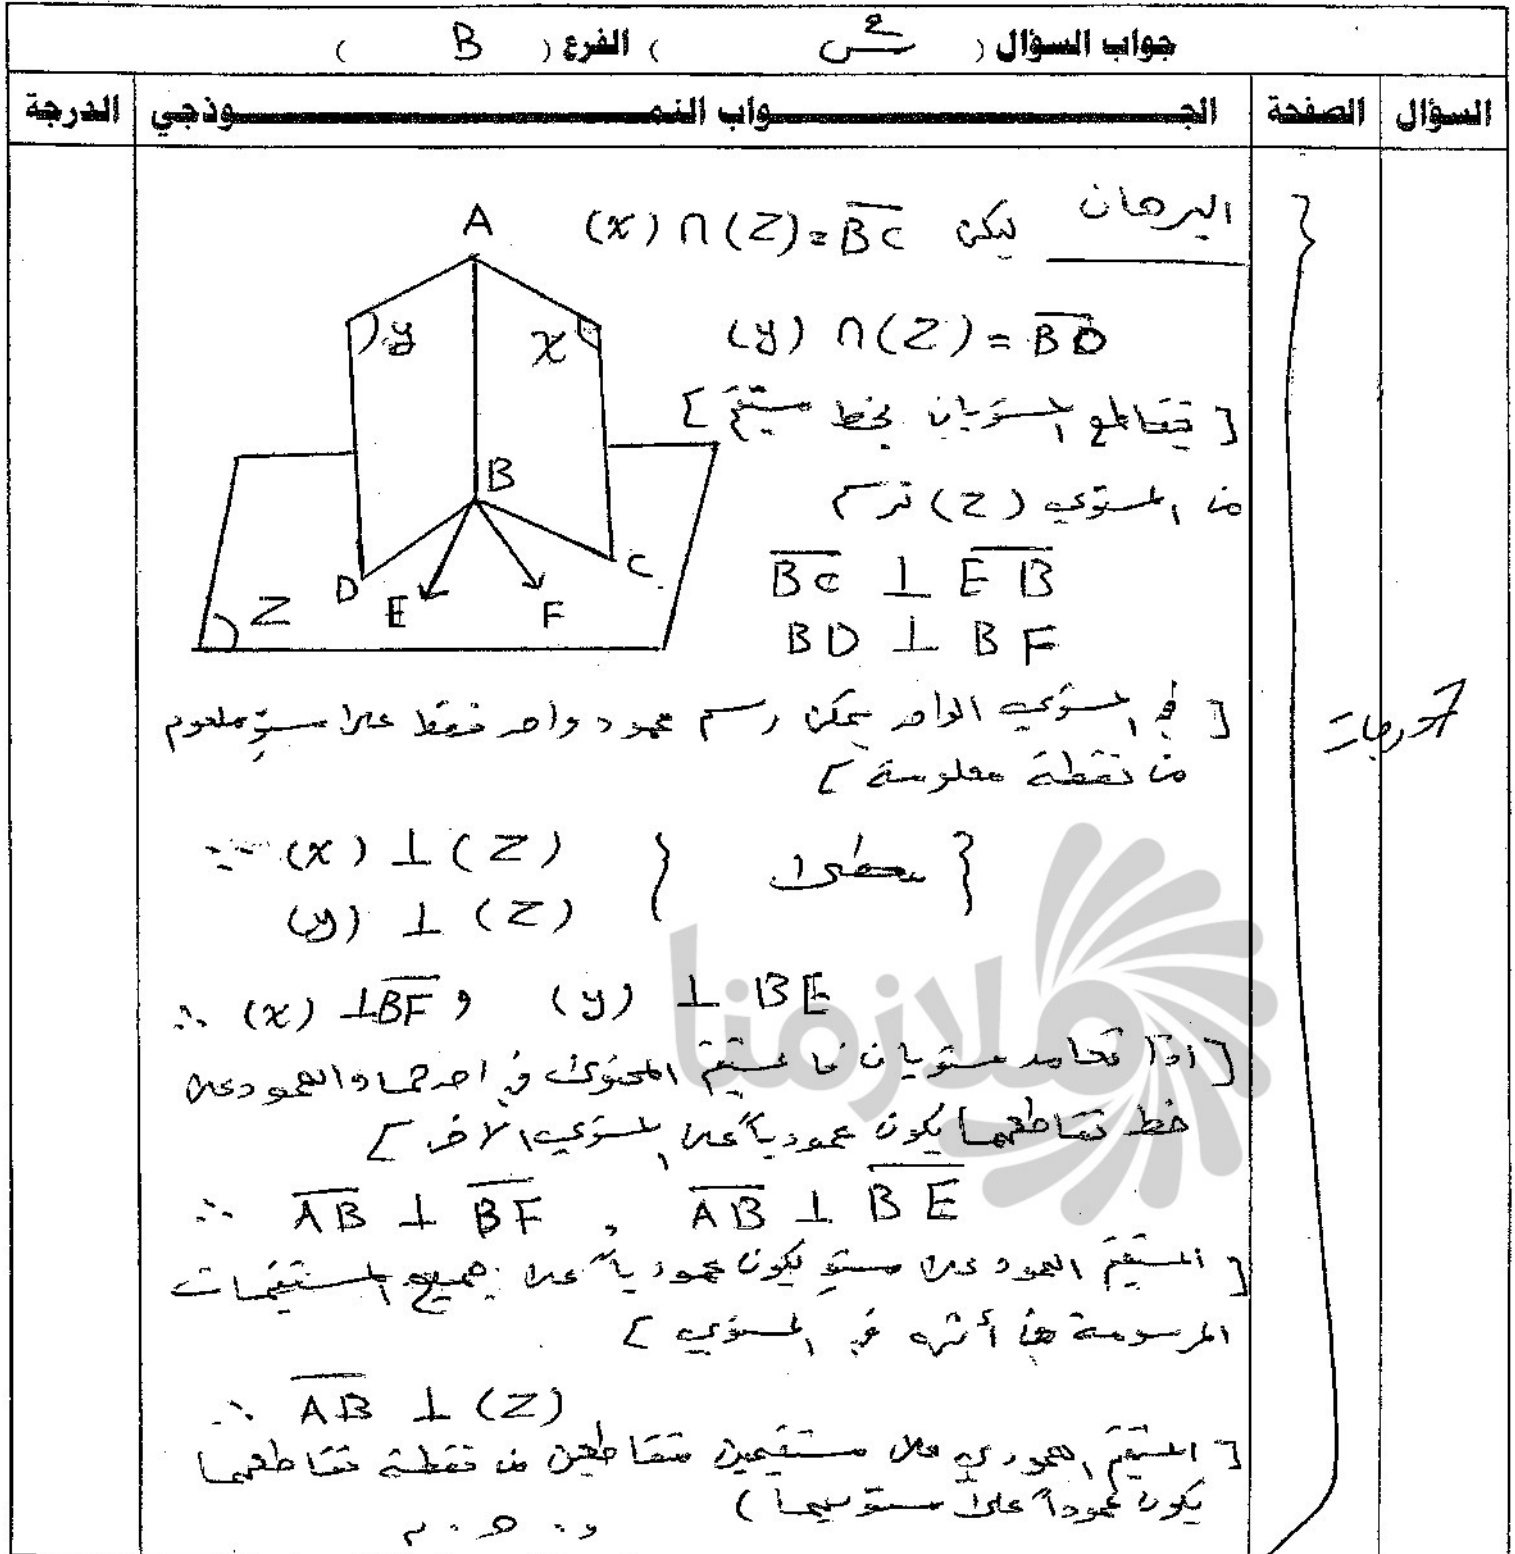 جواب السؤال ( س ) الفرع ( B )
السؤال الصفحة الجـواب النمـوذجي الدرجة
البرهان ليكن (x) ∩ (Z) = BC
(y) ∩ (Z) = BD
[ يتقاطع المستويان بخط مستقيم ]
من المستوي (Z) نرسم
BC ⊥ EB
BD ⊥ BF
[ في المستوي الواحد يمكن رسم عمود واحد فقط على مستوٍ معلوم
من نقطة معلومة ]
∵ (x) ⊥ (Z) } معطى {
(y) ⊥ (Z)
∴ (x) ⊥ BF و (y) ⊥ BE
[ اذا تعامد مستويان فالمستقيم المحتوى في احدهما والعمود على
خط تقاطعهما يكون عمودياً على المستوي الآخر ]
∴ AB ⊥ BF , AB ⊥ BE
[ المستقيم العمود على مستوٍ يكون عمودياً على جميع المستقيمات
المرسومة من أثره في المستوي ]
∴ AB ⊥ (Z)
[ المستقيم العمودي على مستقيمين متقاطعين من نقطة تقاطعهما
يكون عموداً على مستويهما )
و . هـ . م
A
y
x
B
D
E
F
C
Z
7 درجات
ملازمنا